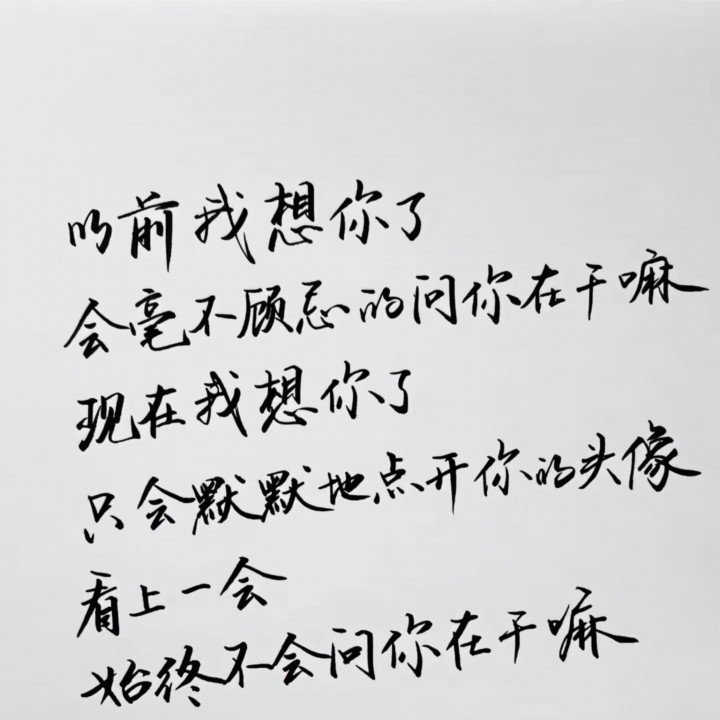 以前我想你了
会毫不顾忌的问你在干嘛
现在我想你了
只会默默地点开你的头像
看上一会
始终不会问你在干嘛